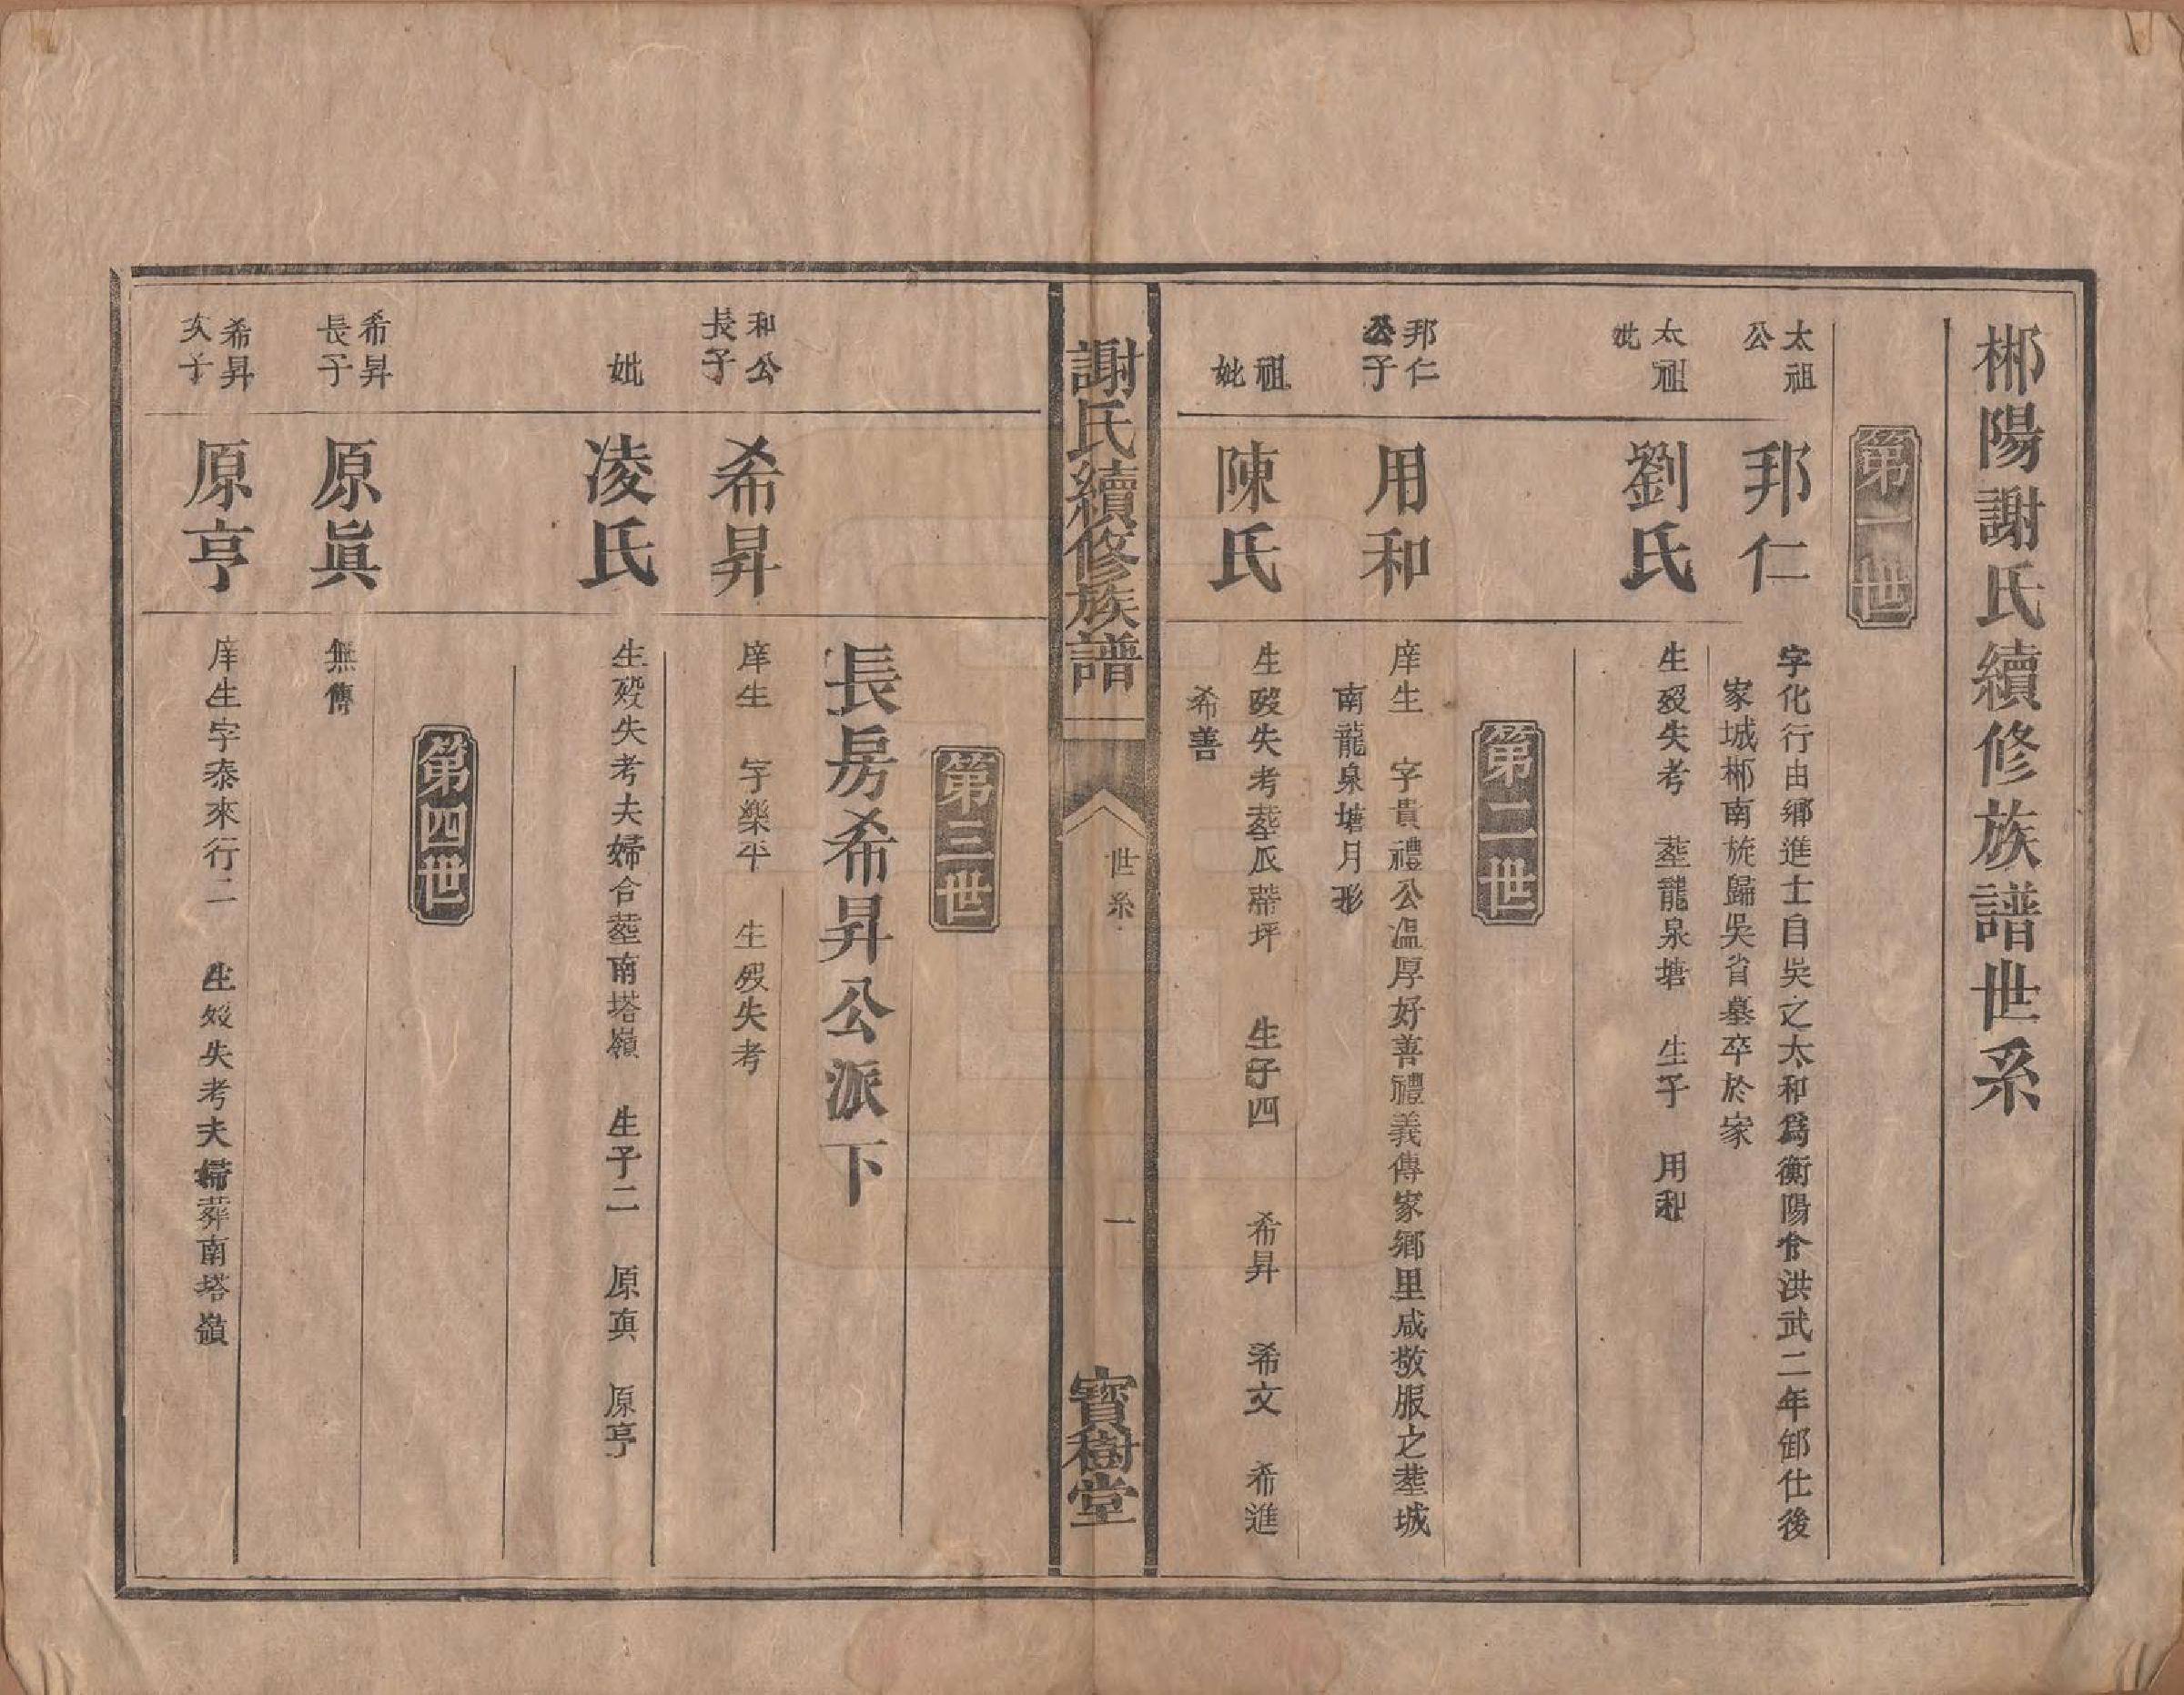 郴陽謝氏續修族譜世系
第一世
太祖公
邦仁
字化行由鄉進士自吳之太和爲衡陽令洪武二年卸仕後
家城郴南旋歸吳省墓卒於家
太祖妣
劉氏
生歿失考 塟龍泉塘 生子 用和
第二世
邦仁公子
用和
庠生 字貴禮公溫厚好善禮義傳家鄉里咸敬服之塟城
南龍泉塘月形
祖妣
陳氏
生歿失考塟瓜蒂坪 生子四 希昇 希文 希進
希善
謝氏續修族譜
世系
一
寳樹堂
第三世
長房希昇公派下
和公長子
希昇
庠生 字樂平 生歿失考
妣
凌氏
生歿失考夫婦合塟南塔嶺 生子二 原真 原亨
第四世
希昇長子
原眞
無傳
希昇次子
原亨
庠生字泰來行二 生歿失考夫婦葬南塔嶺